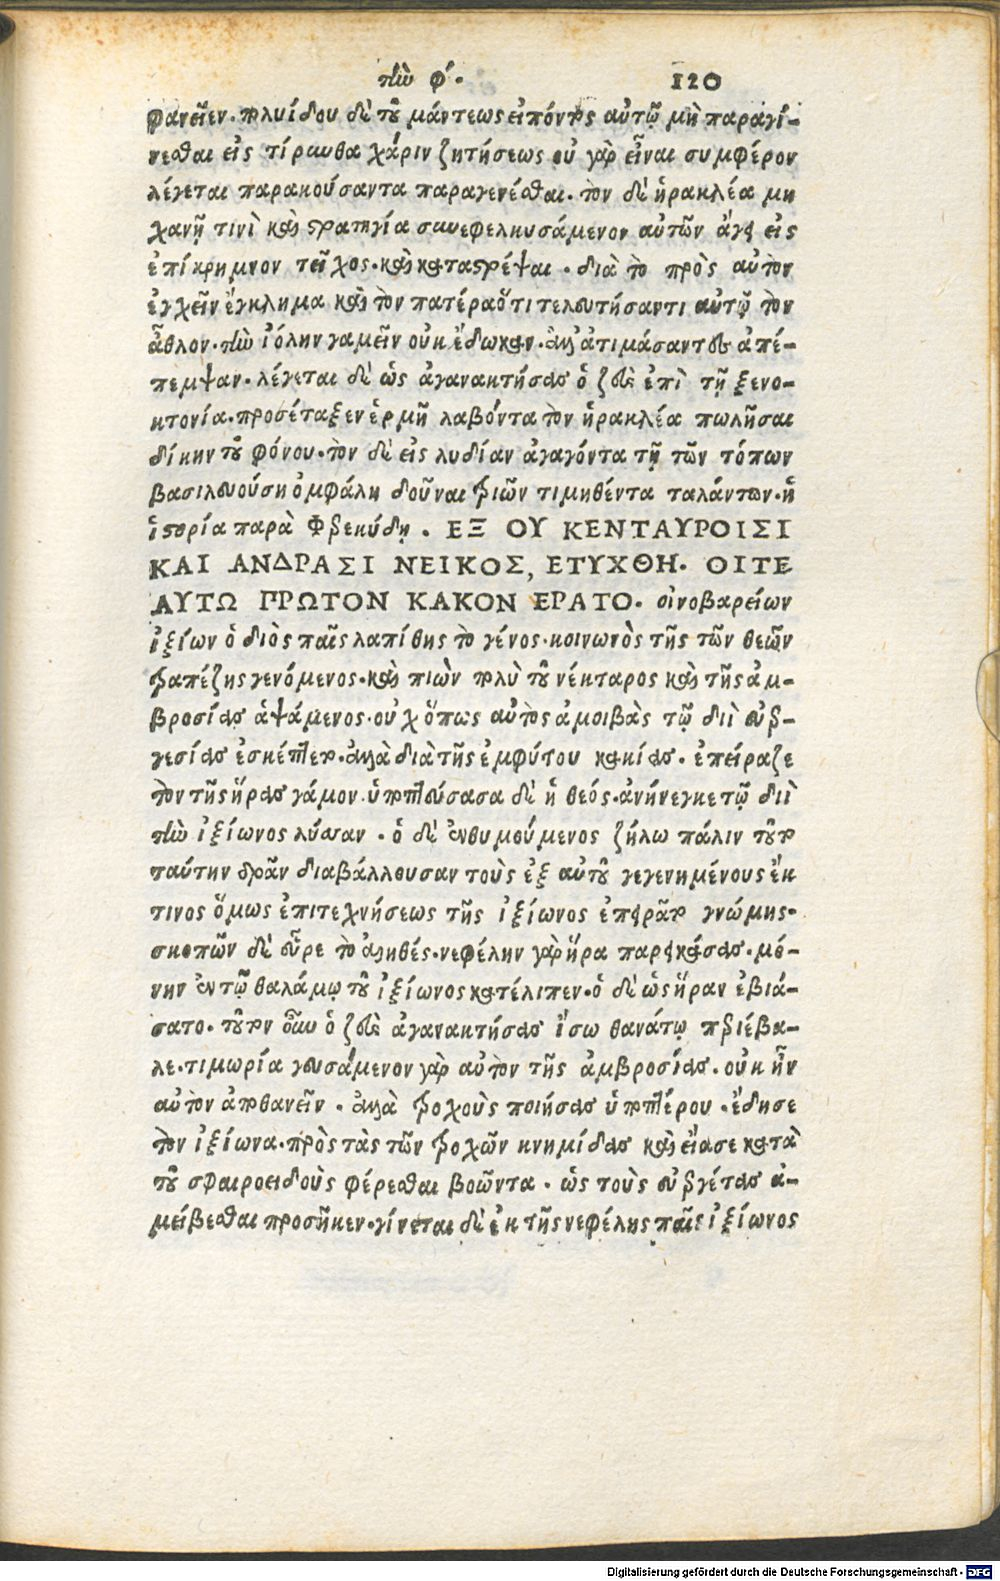 τὴν φ´. 120
φανεῖεν. πολυίδου δὲ τοῦ μάντεως εἰπόντος αὐτῷ μὴ παραγί-
νεσθαι εἰς τίρυνθα χάριν ζητήσεως οὐ γὰρ εἶναι συμφέρον
λέγεται παρακούσαντα παραγενέσθαι. τὸν δὲ ἡρακλέα μη
χανῇ τινὶ καὶ στρατηγία συνεφελκυσάμενον αὐτῶν ἄγει εἰς
ἐπίκρημνον τεῖχος. καὶ καταστρέψαι. διὰ τὸ πρὸς αὐτὸν
ἐγχεῖν ἔγκλημα καὶ τὸν πατέρα ὅτι τελευτήσαντι αὐτῷ τὸν
ἆθλον. τὴν ἰόλην γαμεῖν οὐκ ἔδωκαν. ἀλλ' ἀτιμάσαντες ἀπέ-
πεμψαν. λέγεται δὲ ὡς ἀγανακτήσας ὁ ζεὺς ἐπὶ τῇ ξενο-
κτονία. προσέταξεν ἑρμῇ λαβόντα τὸν ἡρακλέα πωλῆσαι
δίκην τοῦ φόνου. τὸν δὲ εἰς λυδίαν ἀγαγόντα τῇ τῶν τόπων
βασιλευούσῃ ὀμφάλῃ δοῦναι τριῶν τιμηθέντα ταλάντων. ἡ
ἱστορία παρὰ Φερεκύδῃ. ΕΞ ΟΥ ΚΕΝΤΑΥΡΟΙΣΙ
ΚΑΙ ΑΝΔΡΑΣΙ ΝΕΙΚΟΣ, ΕΤΥΧΘΗ. ΟΙΤΕ
ΑΥΤΩ ΠΡΩΤΟΝ ΚΑΚΟΝ ΕΡΑΤΟ. οἰνοβαρείων
ἰξίων ὁ διὸς παῖς λαπίθης τὸ γένος. κοινωνὸς τῆς τῶν θεῶν
τραπέζης γενόμενος. καὶ πιὼν πολὺ τοῦ νέκταρος καὶ τῆς ἀμ-
βροσίας ἁψάμενος. οὐχ ὅπως αὐτὸς ἀμοιβὰς τῷ διὶ εὐερ-
γεσίας ἐσκέπτετο. ἀλλὰ διὰ τῆς ἐμφύτου κακίας. ἐπείραζε
τὸν τῆς ἥρας γάμον. ὑποπτεύσασα δὲ ἡ θεός. ἀνήνεγκε τῷ διὶ
τὴν ἰξίωνος λύσσαν. ὁ δὲ ἐνθυμούμενος ζήλω πάλιν τοῦτο
ταύτην δρᾶν διαβάλλουσαν τοὺς ἐξ αὐτοῦ γεγενημένους ἔκ
τινος ὅμως ἐπιτεχνήσεως τῆς ἰξίωνος ἐπειρᾶτο γνώμης.
σκοπῶν δὲ εὗρε τὸ ἀληθές. νεφέλην γὰρ ἥρα παρεικάσας. μό-
νην ἐν τῷ θαλάμῳ τοῦ ἰξίωνος κατέλιπεν. ὁ δὲ ὡς ἥραν ἐβιά-
σατο. τοῦτον οὖν ὁ ζεὺς ἀγανακτήσας ἴσω θανάτῳ περιέβα-
λε. τιμωρία γευσάμενον γὰρ αὐτὸν τῆς ἀμβροσίας. οὐκ ἦν
αὐτὸν ἀποθανεῖν. ἀλλὰ τροχοὺς ποιήσας ὑποπτέρου. ἔδησε
τὸν ἰξίωνα. πρὸς τὰς τῶν τροχῶν κνημίδας καὶ εἴασε κατὰ
τοῦ σφαιροειδοὺς φέρεσθαι βοῶντα. ὡς τοὺς εὐεργέτας ἀ-
μείβεσθαι προσῆκεν. γίνεται δὲ ἐκ τῆς νεφέλης παῖς ἰξίωνος
Digitalisierung gefördert durch die Deutsche Forschungsgemeinschaft - DFG